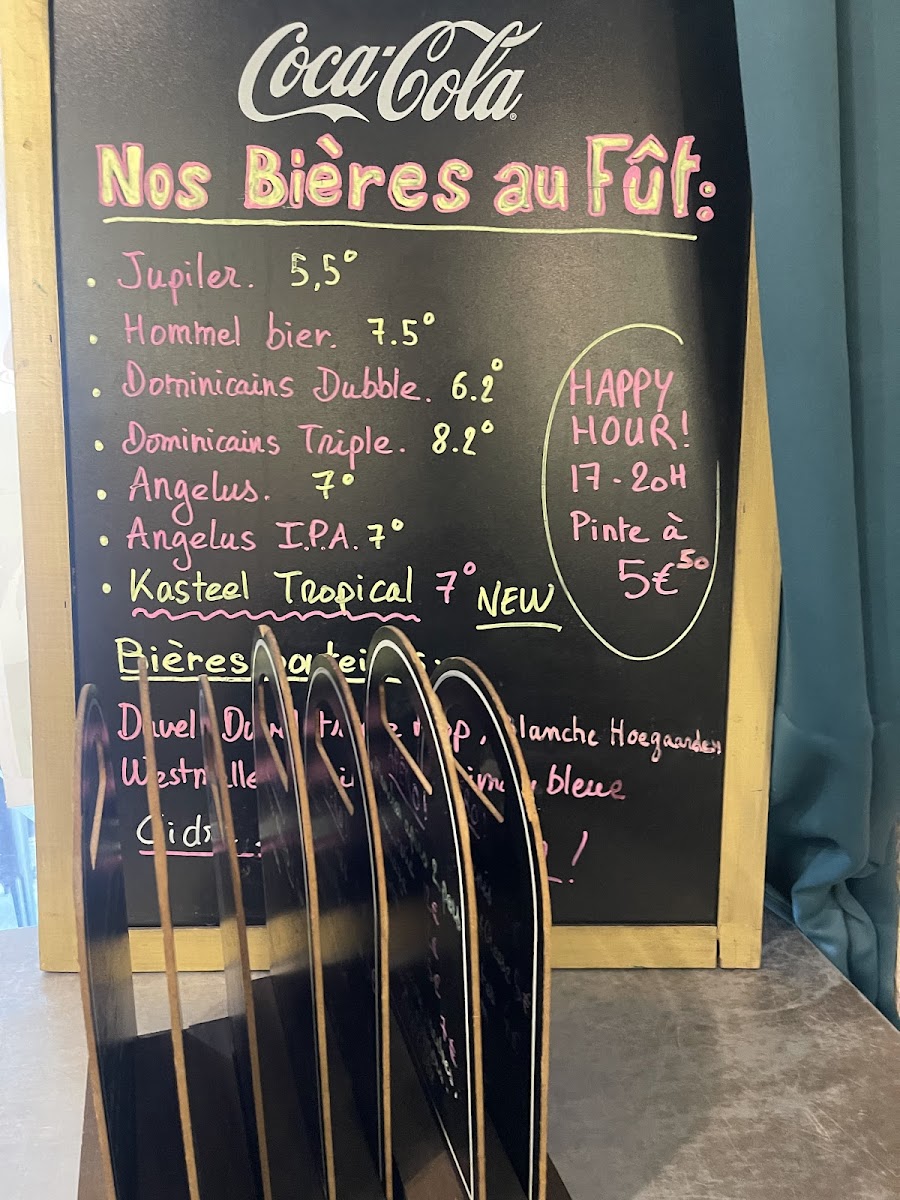 Coca-Cola
Nos Bières au Fût:
Jupiler. 5,5°
Hommel bier. 7.5°
Dominicains Dubble. 6.2°
Dominicains Triple. 8.2°
Angelus. 7°
Angelus I.P.A. 7°
Kasteel Tropical 7° NEW
HAPPY
HOUR!
17-20H
Pinte à
5€50
Bières
Duvel Hoegaarden
bleue